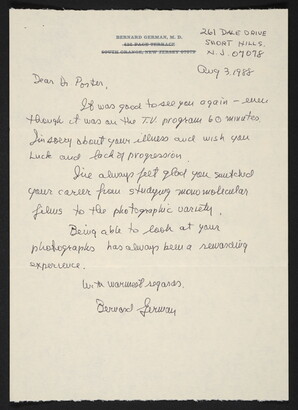 BERNARD GERMAN, M. D.
SOUTH ORANGE, NEW JERSEY 07079
261 DALE DRIVE
SHORT HILLS,
N.J. 07078
Aug 3, 1988
Dear Dr Porter,
It was good to see you again – even
though it was on the TV program 60 minutes.
I'm sorry about your illness and wish you
luck and lack of progression.
I've always felt glad you switched
your career from studying monomolecular
films to the photographic variety.
Being able to look at your
photographs has always been a rewarding
experience.
With warmest regards,
Bernard German